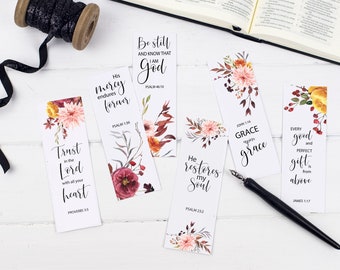 Be still
AND KNOW THAT
I AM
God
PSALM 46:10
His
mercy
endures
forever
PSALM 1:36
Trust
in the
Lord
with all your
heart
PROVERBS 3:5
He
restores
my
Soul
PSALM 23:3
JOHN 1:16
GRACE
upon
grace
Every
good and
PERFECT
gift is
from
above
JAMES 1:17